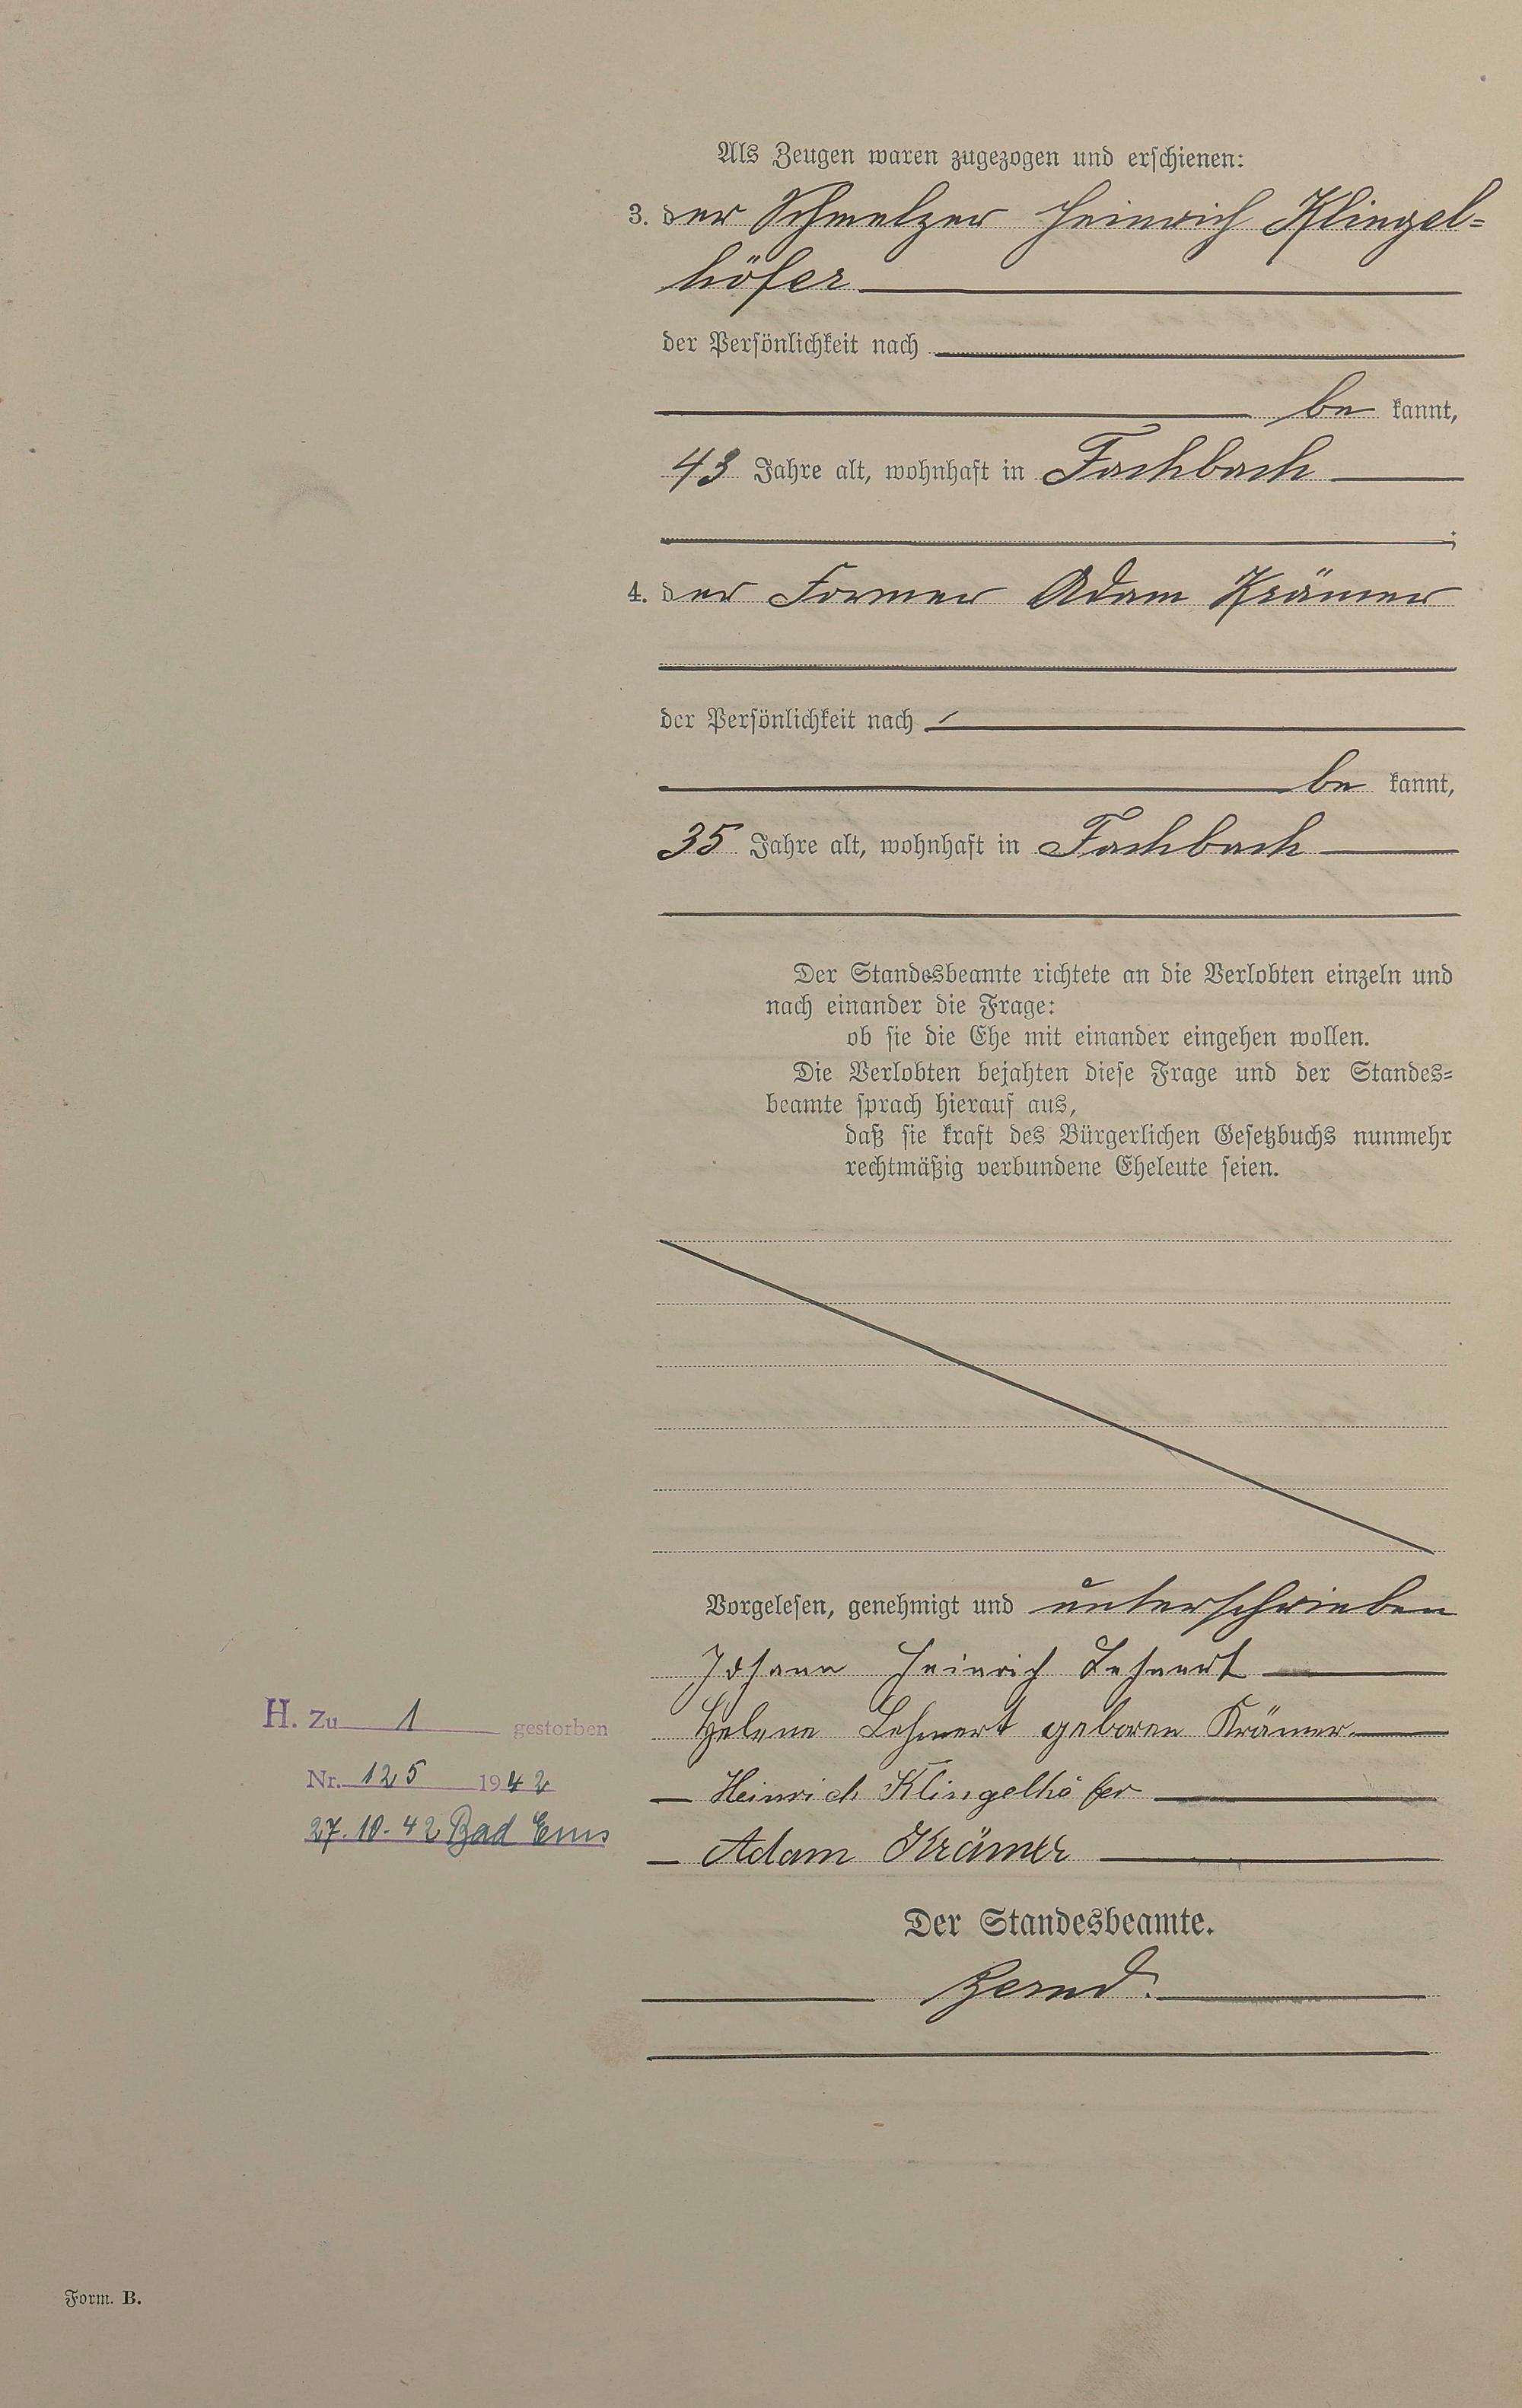 Als Zeugen waren zugezogen und erschienen:
3. der Schmelzer Heinrich Klingel=
höfer
der Persönlichkeit nach
be kannt,
43 Jahre alt, wohnhaft in Fachbach
;
4. der Former Adam Krämer
der Persönlichkeit nach
be kannt,
35 Jahre alt, wohnhaft in Fachbach
Der Standesbeamte richtete an die Verlobten einzeln und
nach einander die Frage:
ob sie die Ehe mit einander eingehen wollen.
Die Verlobten bejahten diese Frage und der Standes=
beamte sprach hierauf aus,
daß sie kraft des Bürgerlichen Gesetzbuchs nunmehr
rechtmäßig verbundene Eheleute seien.
Vorgelesen, genehmigt und unterschrieben
Johann Heinrich Lehnert
Helene Lehnert geboren Krämer
Heinrich Klingelhöfer
Adam Krämer
H. Zu 1 gestorben
Nr. 125 1942
27.10.42 Bad Ems
Der Standesbeamte.
Bernd.
Form. B.